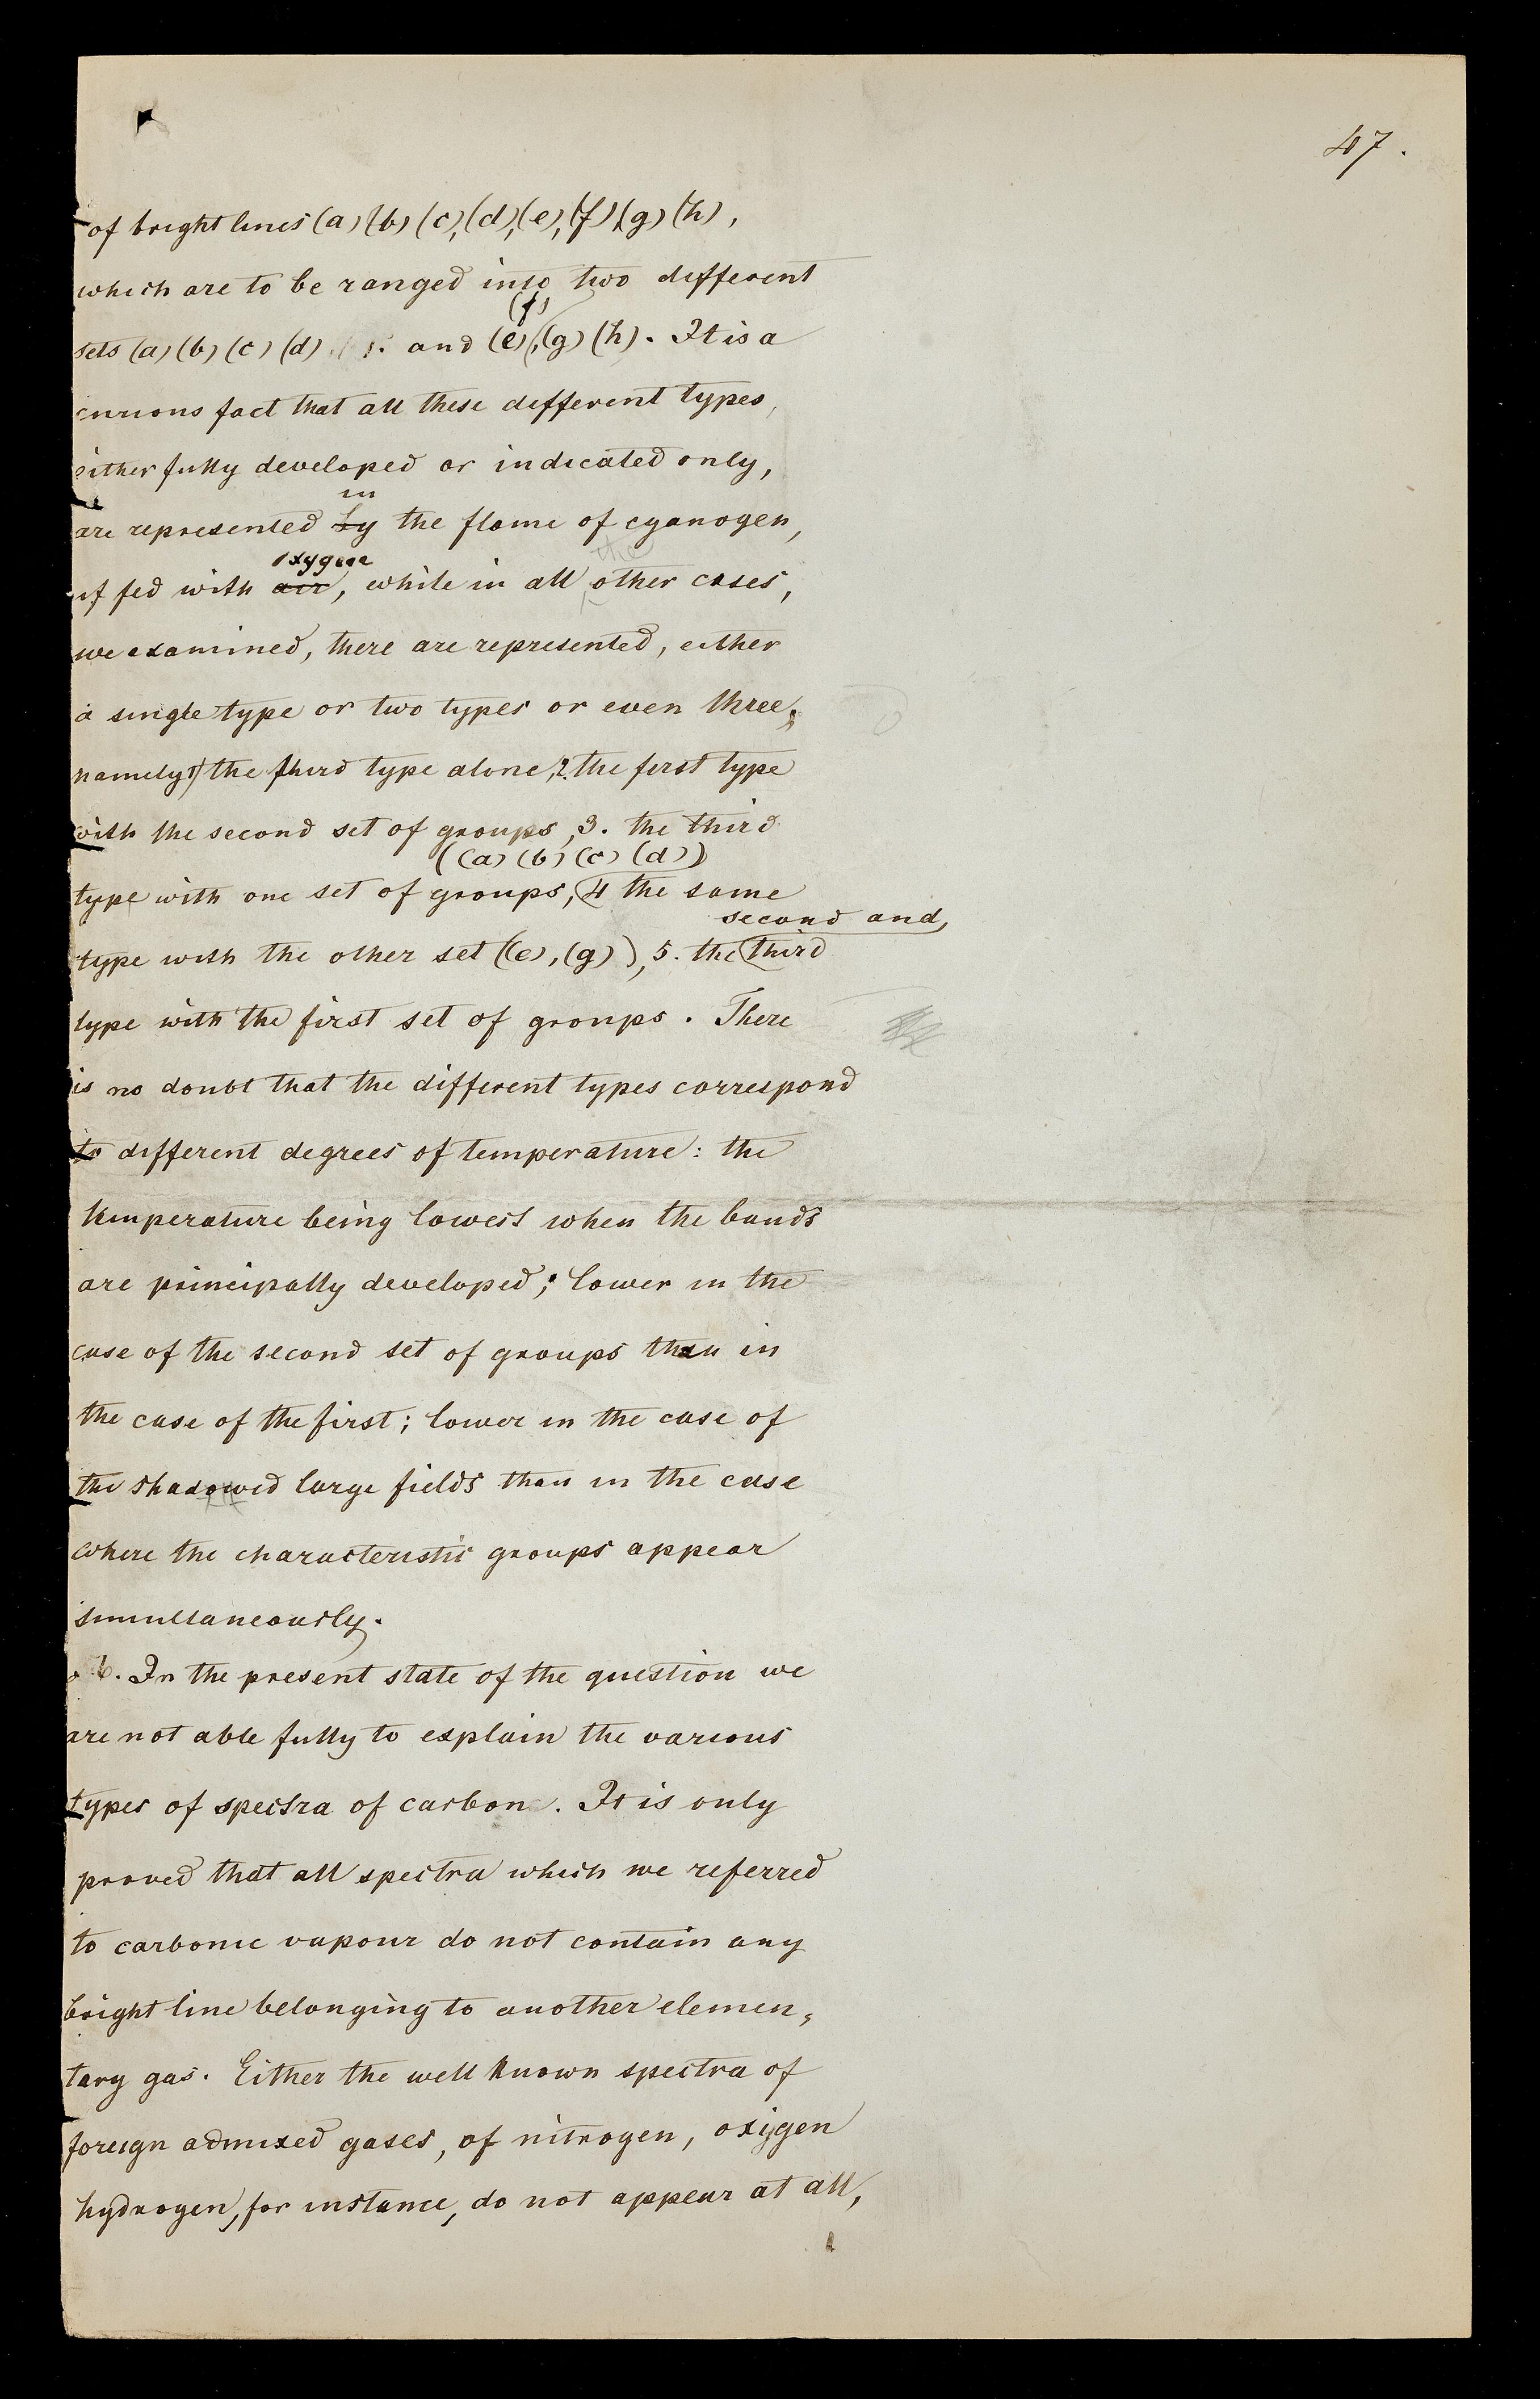 47.
of bright lines (a) (b) (c), (d), (e), (f), (g) (h),
which are to be ranged into two different
(f)
sets (a) (b) (c) (d) and (e), (g) (h). It is a
curious fact that all these different types,
either fully developed or indicated only,
in
are represented by the flame of cyanogen,
oxygene the
if fed with air, while in all other cases,
we examined, there are represented, either
a single type or two types or even three,
namely 1) the third type alone, 2. the first type
with the second set of groups, 3. the third
((a) (b) (c) (d))
type with one set of groups, 4 the same
second and
type with the other set ((e), (g)), 5. the third
type with the first set of groups. There
is no doubt that the different types correspond
to different degrees of temperature: the
temperature being lowest when the bands
are principally developed; lower in the
case of the second set of groups than in
the case of the first; lower in the case of
the shadowed large fields than in the case
where the characteristic groups appear
simultaneously.
6. In the present state of the question we
are not able fully to explain the various
types of spectra of carbon. It is only
proved that all spectra which we referred
to carbonic vapour do not contain any
bright line belonging to another elemen,
tary gas. Either the well known spectra of
foreign admixed gases, of nitrogen, oxigen
hydrogen, for instance, do not appear at all,